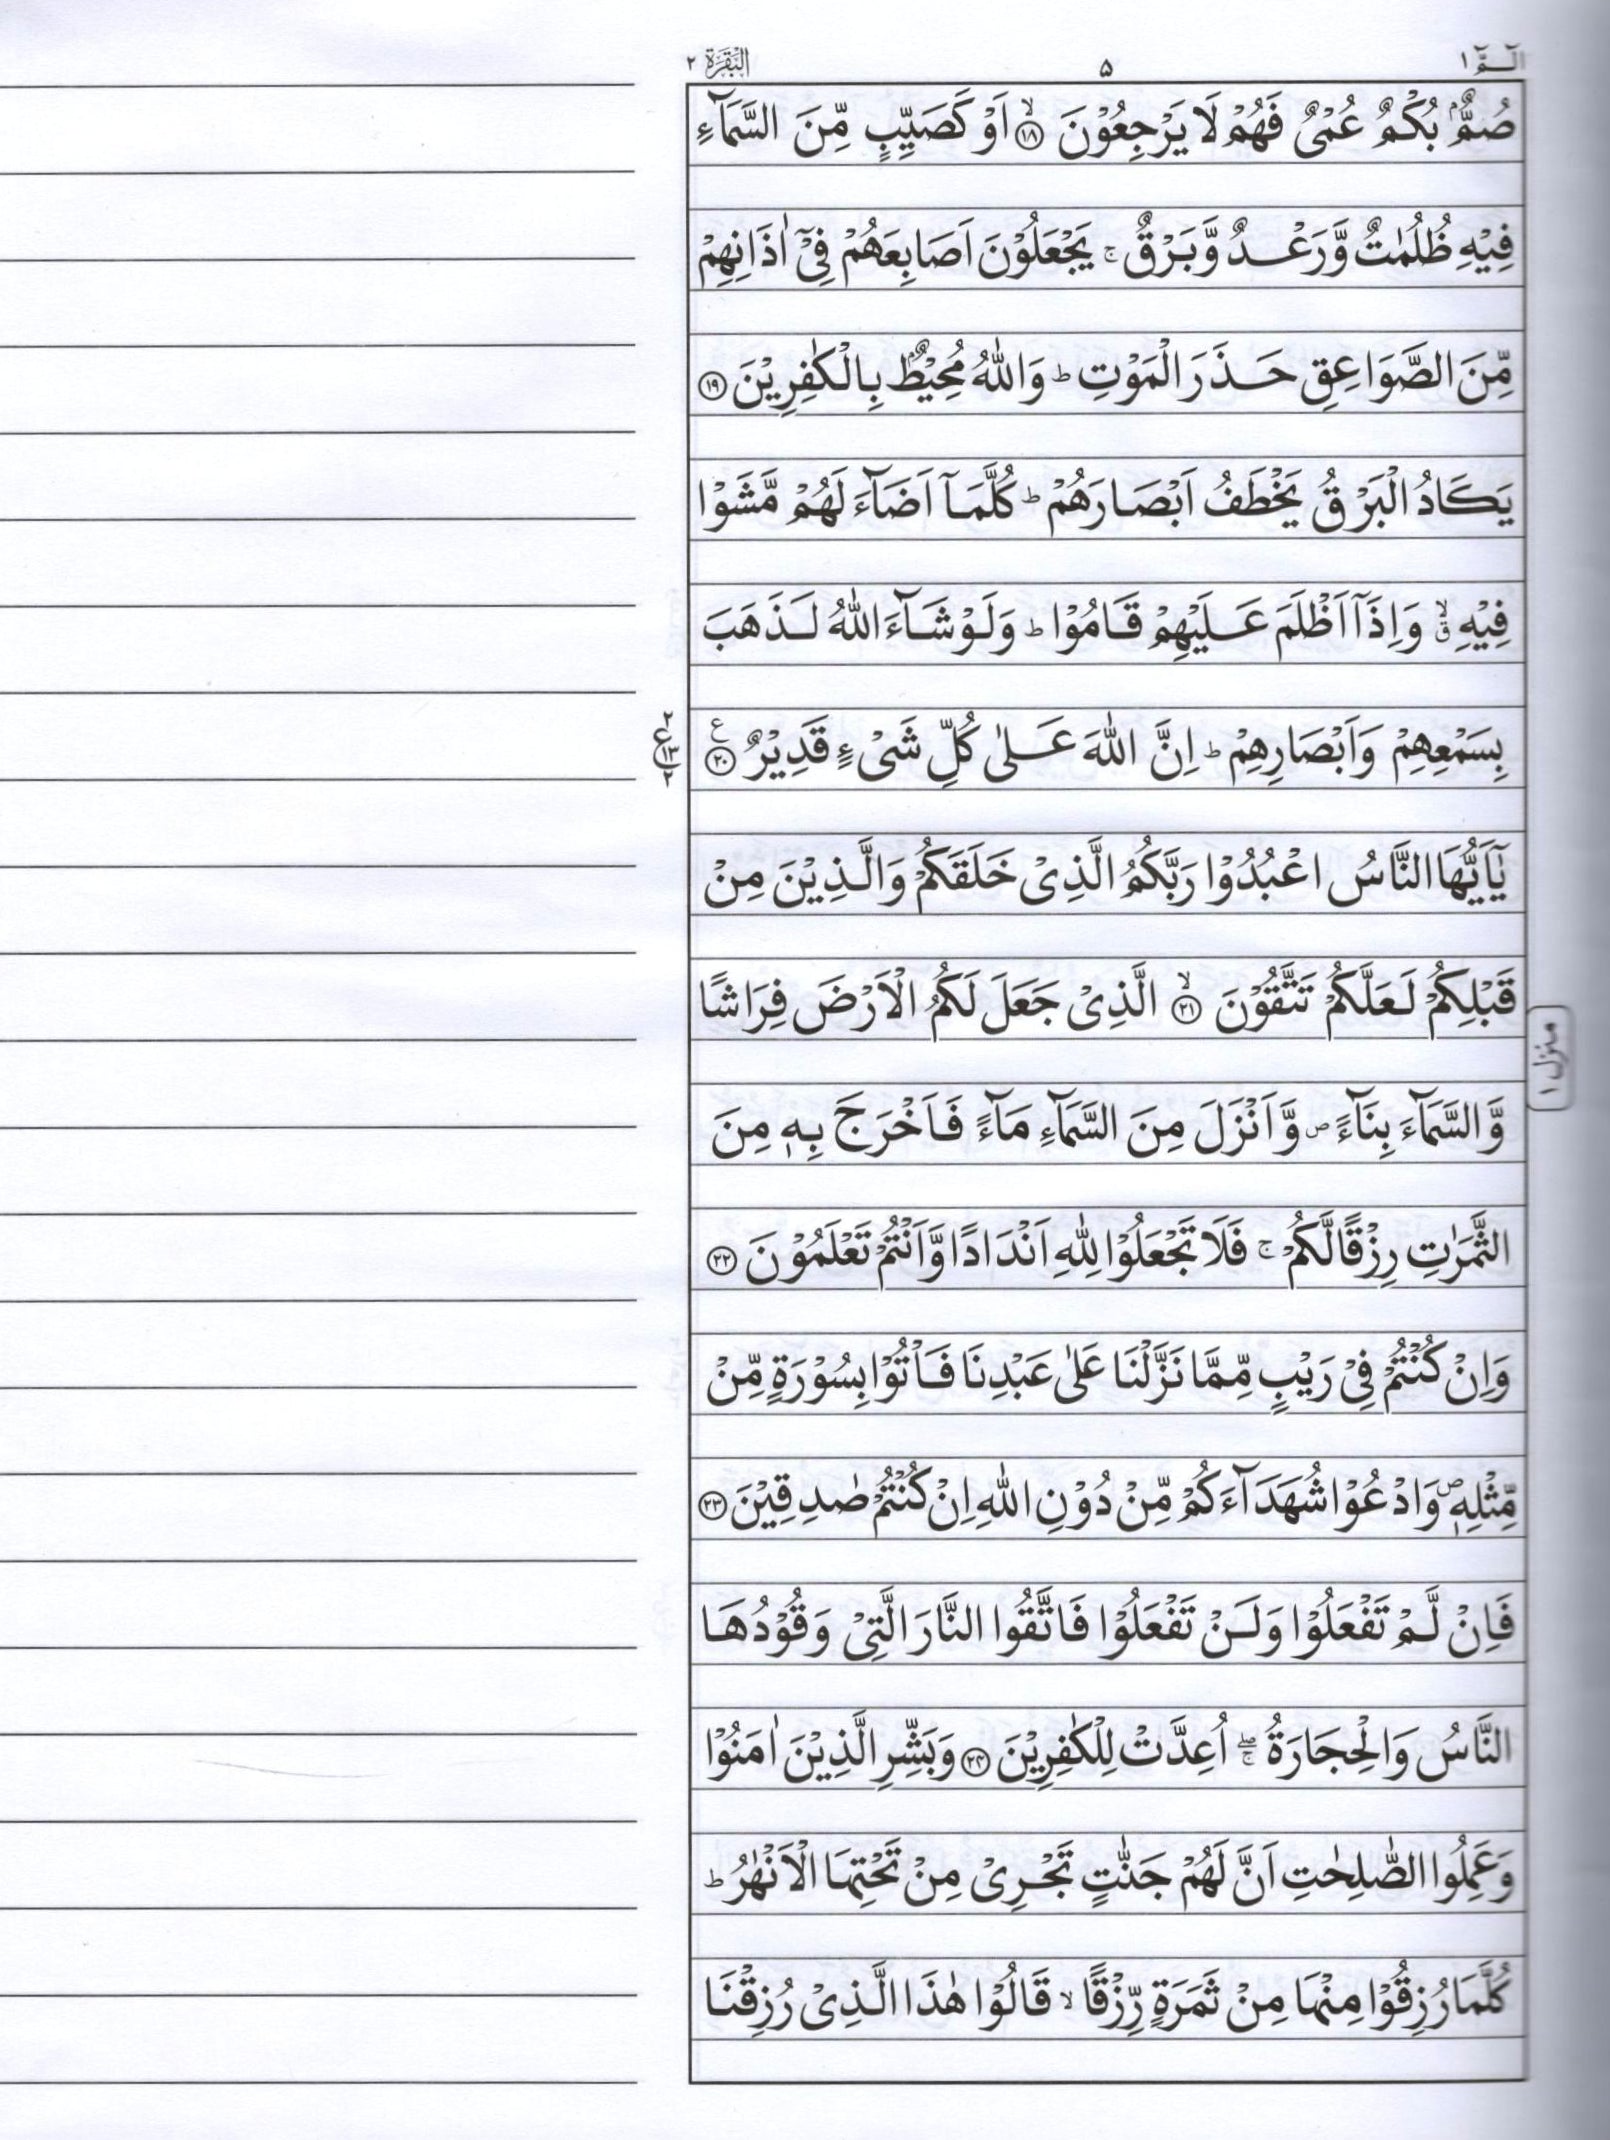 الٓـمّٓ ١
۵
البقرة ٢
صُمٌّۢ بُكْمٌ عُمْیٌ فَهُمْ لَا یَرْجِعُوْنَ ۙ﴿۱۸﴾ اَوْ كَصَیِّبٍ مِّنَ السَّمَآءِ
فِیْهِ ظُلُمٰتٌ وَّرَعْدٌ وَّبَرْقٌ ۚ یَجْعَلُوْنَ اَصَابِعَهُمْ فِیْۤ اٰذَانِهِمْ
مِّنَ الصَّوَاعِقِ حَذَرَ الْمَوْتِ ؕ وَاللّٰهُ مُحِیْطٌۢ بِالْكٰفِرِیْنَ ﴿۱۹﴾
یَكَادُ الْبَرْقُ یَخْطَفُ اَبْصَارَهُمْ ؕ كُلَّمَاۤ اَضَآءَ لَهُمْ مَّشَوْا
فِیْهِ ۙۗ وَاِذَاۤ اَظْلَمَ عَلَیْهِمْ قَامُوْا ؕ وَلَوْ شَآءَ اللّٰهُ لَذَهَبَ
بِسَمْعِهِمْ وَاَبْصَارِهِمْ ؕ اِنَّ اللّٰهَ عَلٰی كُلِّ شَیْءٍ قَدِیْرٌ ﴿۲۰﴾ ع
٢ ع ١٣ ٢
یٰۤاَیُّهَا النَّاسُ اعْبُدُوْا رَبَّكُمُ الَّذِیْ خَلَقَكُمْ وَالَّذِیْنَ مِنْ
قَبْلِكُمْ لَعَلَّكُمْ تَتَّقُوْنَ ۙ﴿۲۱﴾ الَّذِیْ جَعَلَ لَكُمُ الْاَرْضَ فِرَاشًا
وَّالسَّمَآءَ بِنَآءً ۪ وَّاَنْزَلَ مِنَ السَّمَآءِ مَآءً فَاَخْرَجَ بِهٖ مِنَ
الثَّمَرٰتِ رِزْقًا لَّكُمْ ۚ فَلَا تَجْعَلُوْا لِلّٰهِ اَنْدَادًا وَّاَنْتُمْ تَعْلَمُوْنَ ﴿۲۲﴾
وَاِنْ كُنْتُمْ فِیْ رَیْبٍ مِّمَّا نَزَّلْنَا عَلٰی عَبْدِنَا فَاْتُوْا بِسُوْرَةٍ مِّنْ
مِّثْلِهٖ ۪ وَادْعُوْا شُهَدَآءَكُمْ مِّنْ دُوْنِ اللّٰهِ اِنْ كُنْتُمْ صٰدِقِیْنَ ﴿۲۳﴾
فَاِنْ لَّمْ تَفْعَلُوْا وَلَنْ تَفْعَلُوْا فَاتَّقُوا النَّارَ الَّتِیْ وَقُوْدُهَا
النَّاسُ وَالْحِجَارَةُ ۖۚ اُعِدَّتْ لِلْكٰفِرِیْنَ ﴿۲۴﴾ وَبَشِّرِ الَّذِیْنَ اٰمَنُوْا
وَعَمِلُوا الصّٰلِحٰتِ اَنَّ لَهُمْ جَنّٰتٍ تَجْرِیْ مِنْ تَحْتِهَا الْاَنْهٰرُ ؕ
كُلَّمَا رُزِقُوْا مِنْهَا مِنْ ثَمَرَةٍ رِّزْقًا ۙ قَالُوْا هٰذَا الَّذِیْ رُزِقْنَا
منزل ١